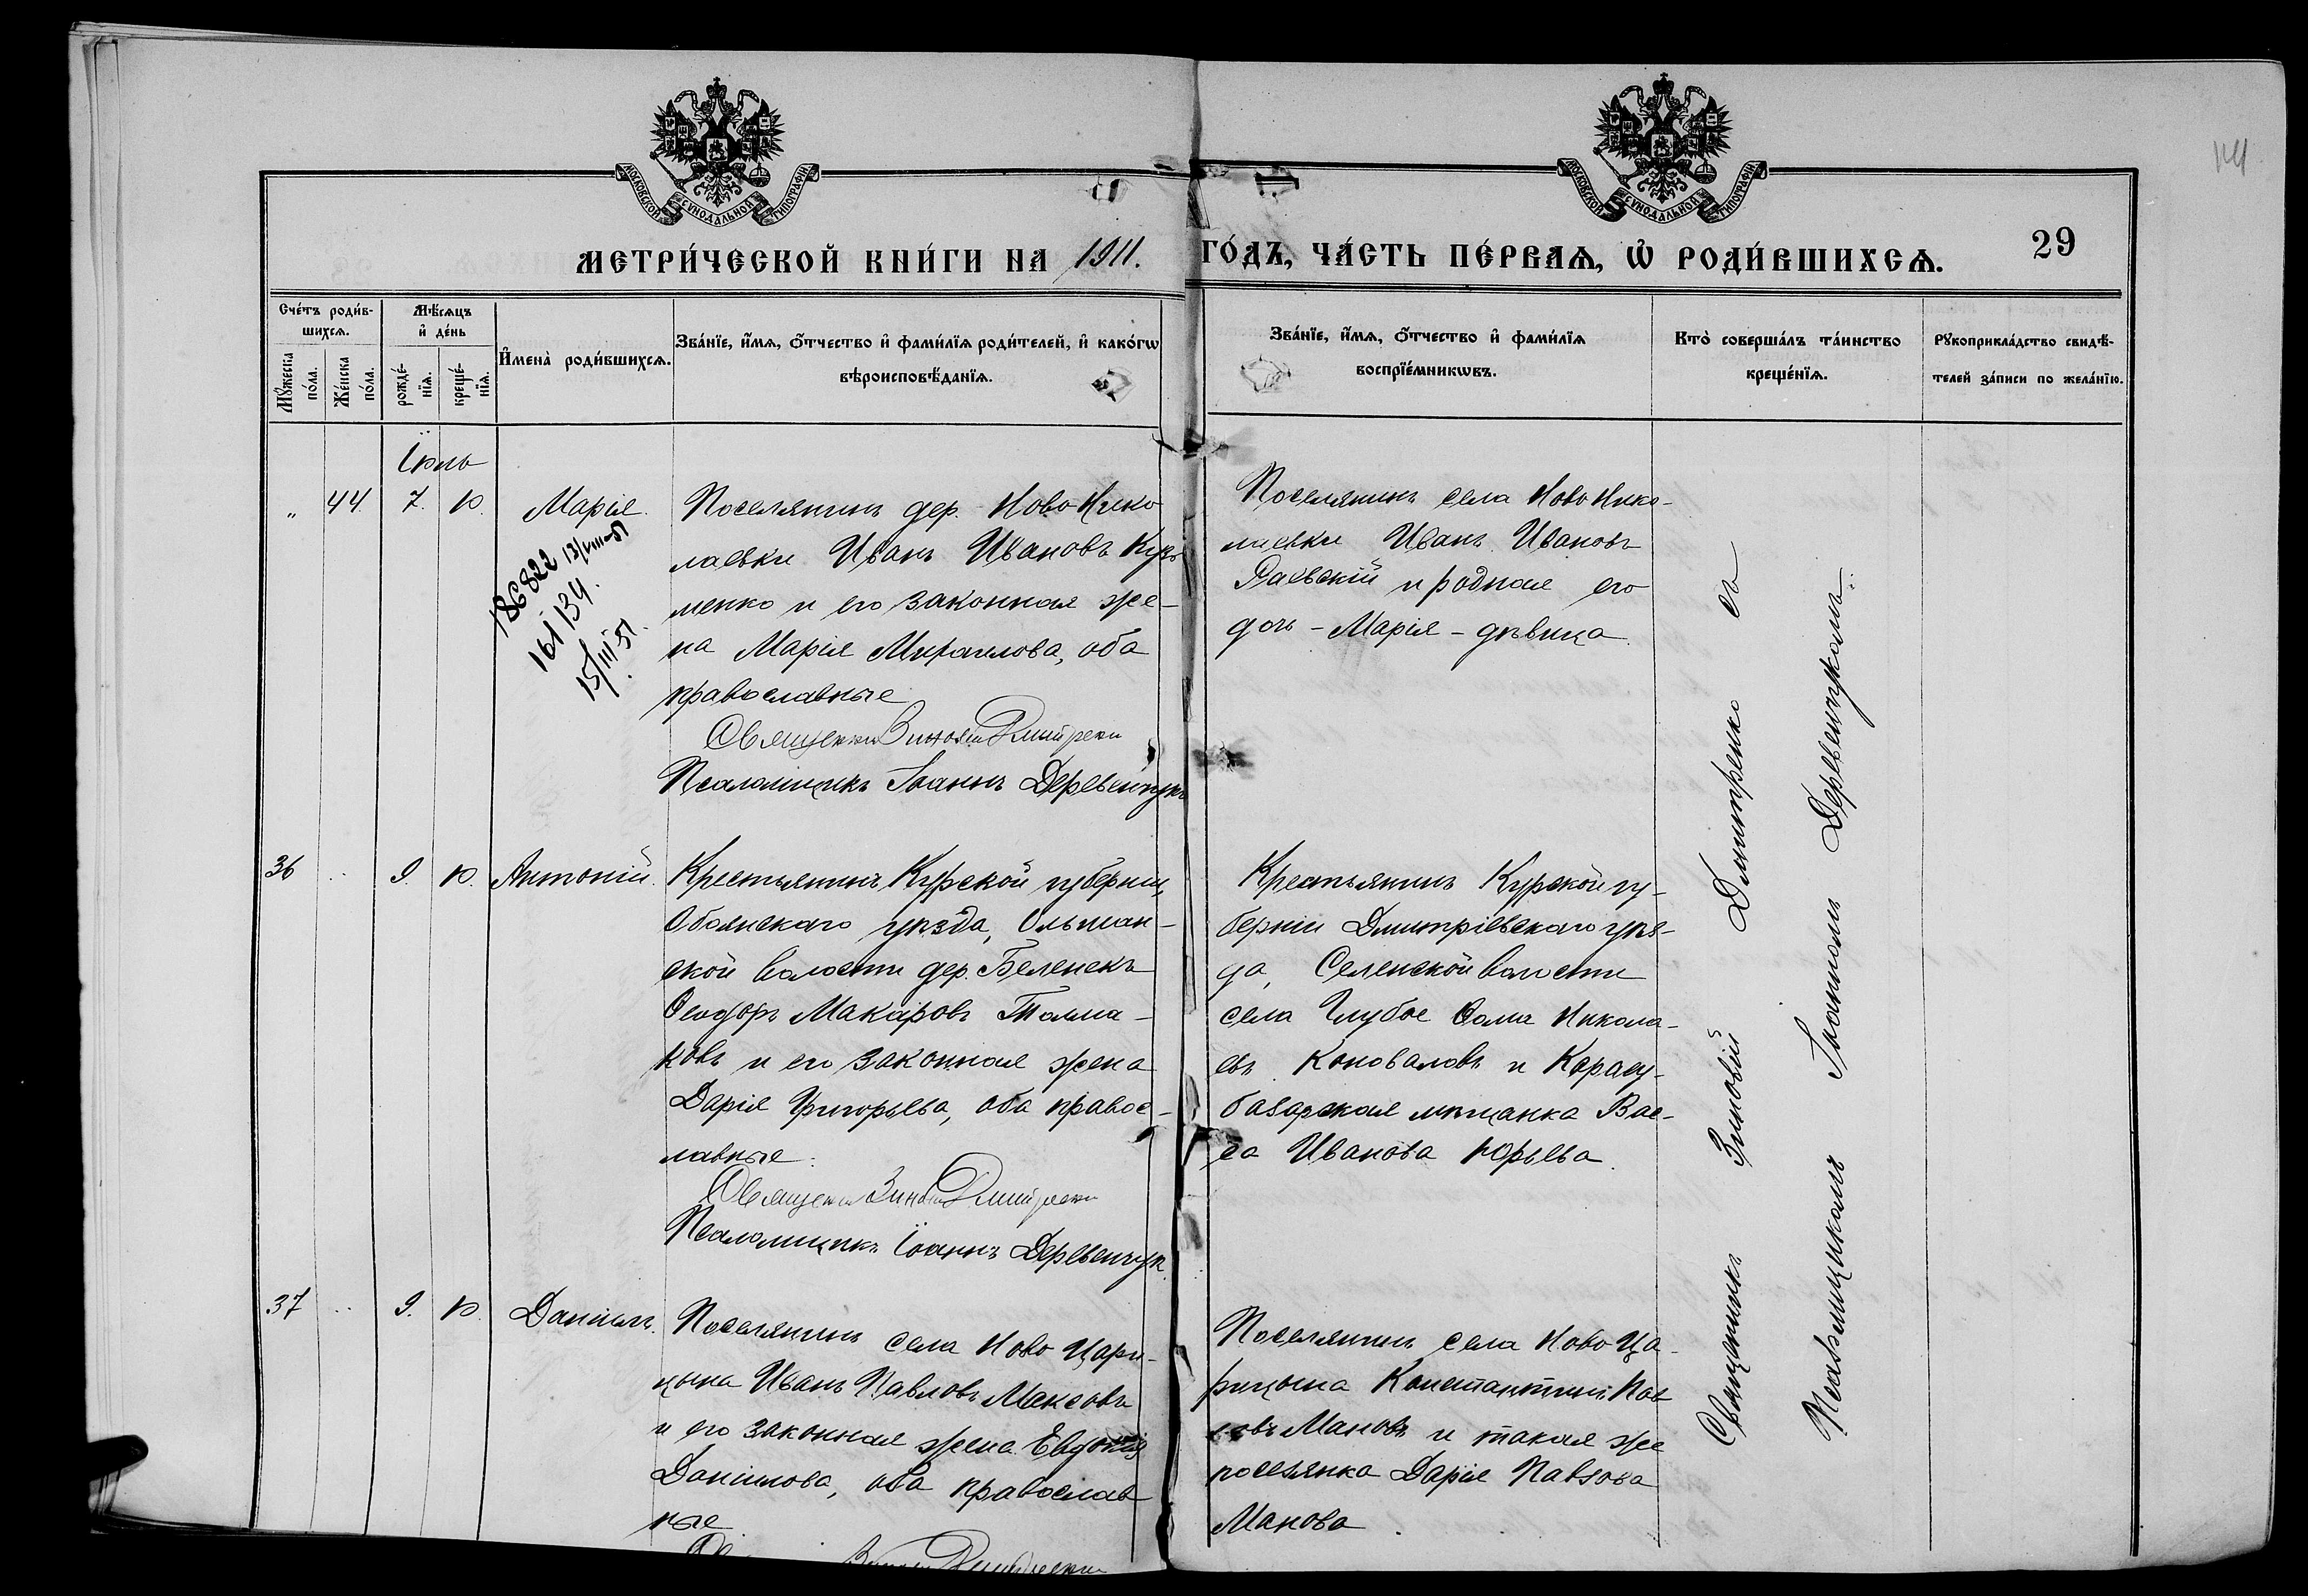 МОСКОВСКОЙ СѴНОДАЛЬНОЙ ТИПОГРАФІИ
МОСКОВСКОЙ СѴНОДАЛЬНОЙ ТИПОГРАФІИ
МЕТРИ́ЧЕСКОЙ КНИ́ГИ НА 1911. ГО́ДЪ, ЧА́СТЬ ПЕ́РВАѦ, Ѡ҆ РОДИ́ВШИХСѦ.
29
Сче́тъ роди́в-
шихсѧ.
Мꙋ́жеска по́ла.
Же́нска по́ла.
Мѣ́сѧцъ
и҆ де́нь
рожде́-
нїѧ.
креще́-
нїѧ.
И҆мена̀ роди́вшихсѧ.
Зва́нїе, и҆́мѧ, ѻ҆́тчество и҆ фами́лїѧ роди́телей, и҆ како́гѡ
вѣроисповѣ́данїѧ.
Зва́нїе, и҆́мѧ, ѻ҆́тчество и҆ фами́лїѧ
воспрїе́мникѡвъ.
Кто̀ соверша́лъ та́инство
креще́нїѧ.
Рꙋкоприкла́дство свидѣ́-
телей за́писи по жела́нїю.
Іюль
„ 44. 7. 10. Марія.
186822 13/VIII-51
161134.
15/III 51.
Поселянинъ дер. Ново-Нико
лаевки Иванъ Ивановъ Кузь
менко и его законная же-
на Марія Михаилова, оба
православные
Священникъ Зиновій Дмитренко
Псаломщикъ Іоаннъ Деревенчукъ
Поселянинъ села Ново Нико-
лаевки Иванъ Ивановъ
Раевскій и родная его
дочь - Марія - дѣвица.
36 .. 9. 10. Антоній.
Крестьянинъ Курской губерніи,
Обоянскаго уѣзда, Ольшан-
ской волости дер. Беленекъ
Ѳеодоръ Макаровъ Толма-
ковъ и его законная жена
Дарія Григорьева, оба правос-
лавные.
Священникъ Зиновій Дмитренко
Псаломщикъ Іоаннъ Деревенчукъ
Крестьянинъ Курской гу-
берніи Дмитріевскаго уѣз-
да, Селенской волости
села Глубое Ѳома Никола-
евъ Коноваловъ и Карасу-
базарская мѣщанка Вас-
са Иванова Юрьева.
37 .. 9. 10. Даніилъ.
Поселянинъ села Ново Цари-
цына Иванъ Павловъ Максовъ
и его законная жена Евдокія
Даніилова, оба православ
ные
Поселянинъ села Ново Ца-
рицына Константинъ Пав
ловъ Мановъ и такая же
поселянка Дарія Павлова
Манова.
Священникъ Зиновій Дмитренко съ
Псаломщикомъ Іоанномъ Деревенчукомъ.